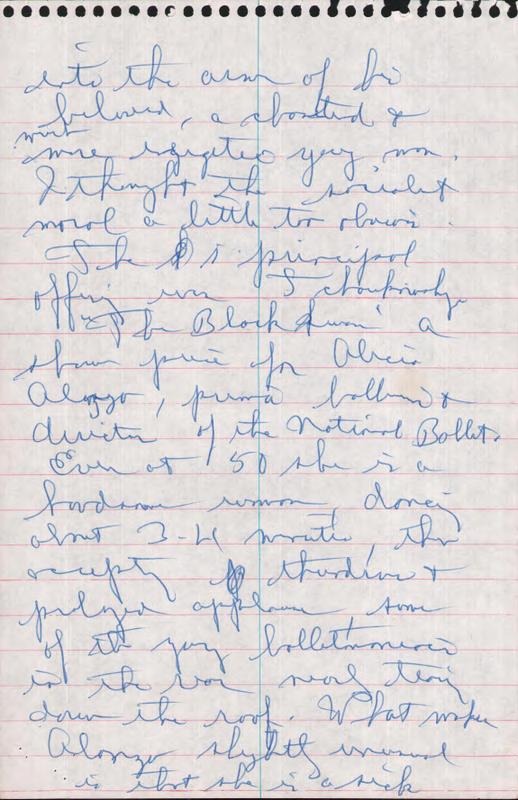 into the arms of his
beloved, a chastened &
much
more energetic young man.
I thought the socialist
moral a little too obvious.
The principal
offering was Tchaikovsky
"The Black Swan" a
show piece for Alicia
Alonzo, prima ballerina &
director of the National Ballet.
Even at 50 she is a
handsome woman, dancing
about 3-4 minutes, then
accepting thunderous &
prolonged applause some
of the young balletomanes
in the rear nearly tearing
down the roof. What makes
Alonzo slightly unusual
is that she is a sick